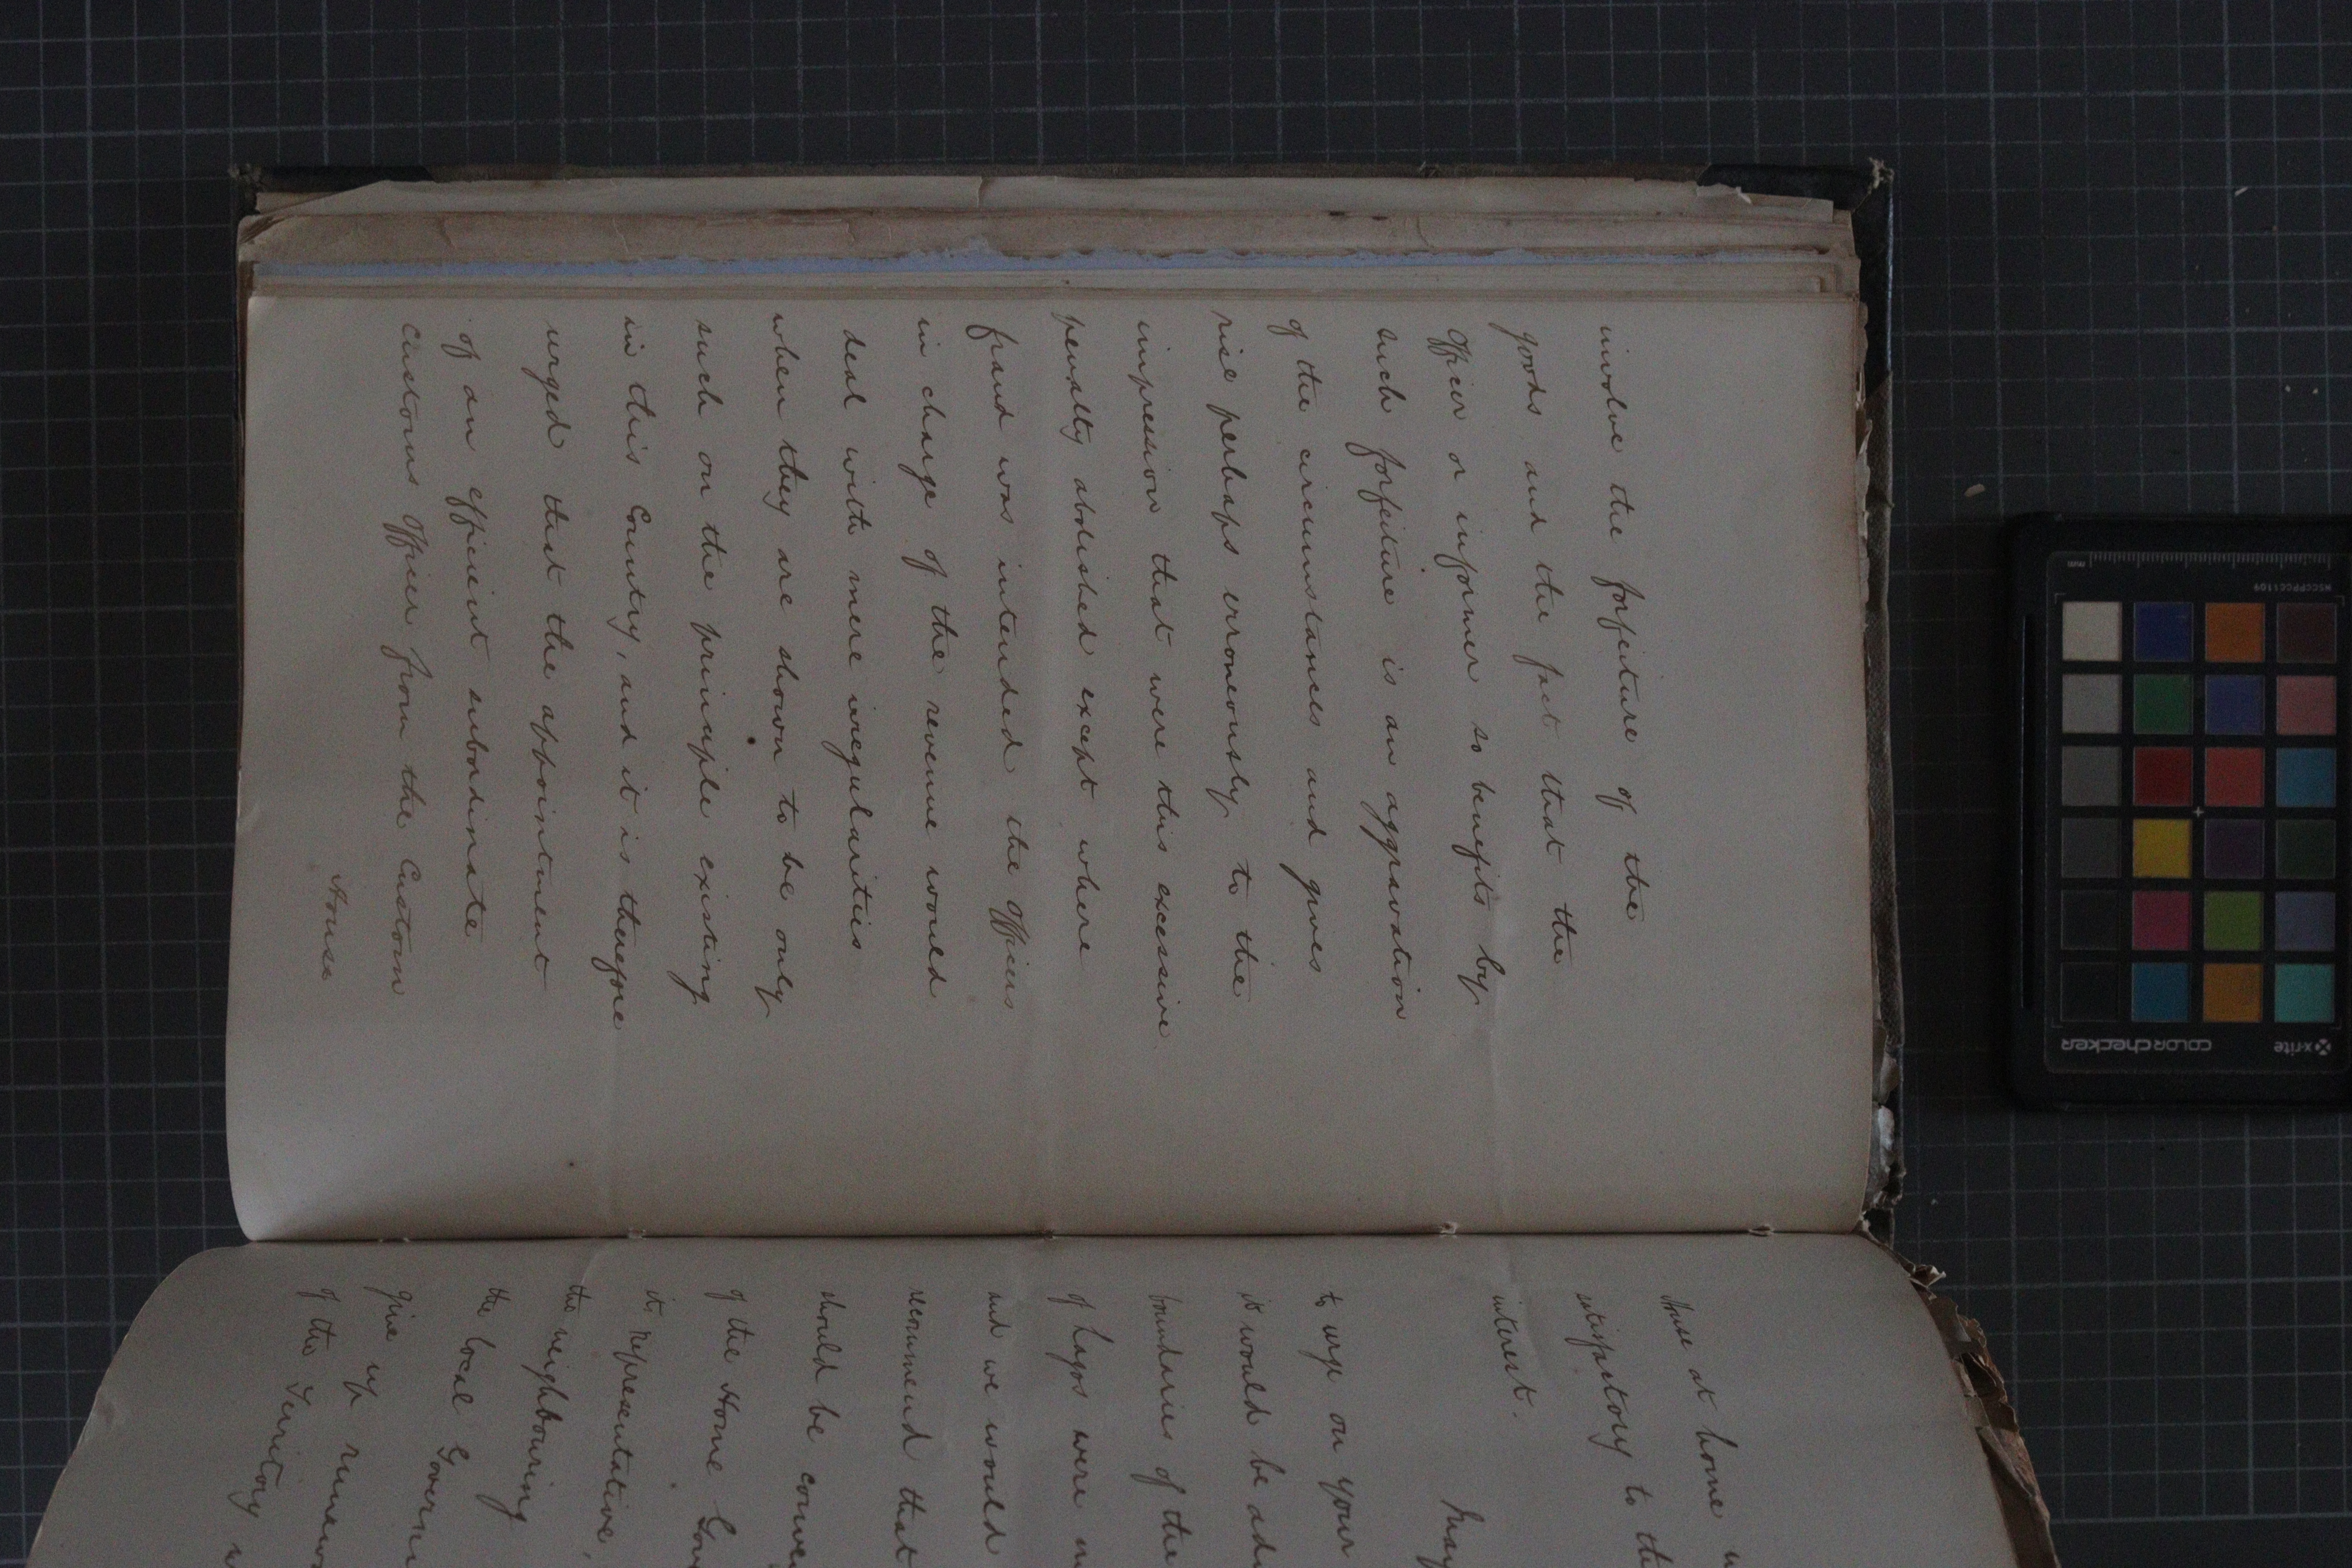 involve the forfeiture of the
goods and the fact that the
Officer or informer so benefits by
such forfeiture is an aggravation
of the circumstances and gives
rise perhaps erroneously to the
impression that were this excessive
penalty abolished except where
fraud was intended the Officers
in charge of the revenue would
deal with mere irregularities
when they are shown to be only
such on the principle existing
in this Country, and it is therefore
urged that the appointment
of an efficient subordinate
customs Officer from the Custom
House
House at home
satisfactory to the
interest.
to urge on your
it would be
boundaries of the
of Lagos were
and we would
recommend that
should be
of the Home
its representative,
the neighbouring
the local
give up
of the Territory
mm
MSCCPPCC1109
colorchecker
x-rite